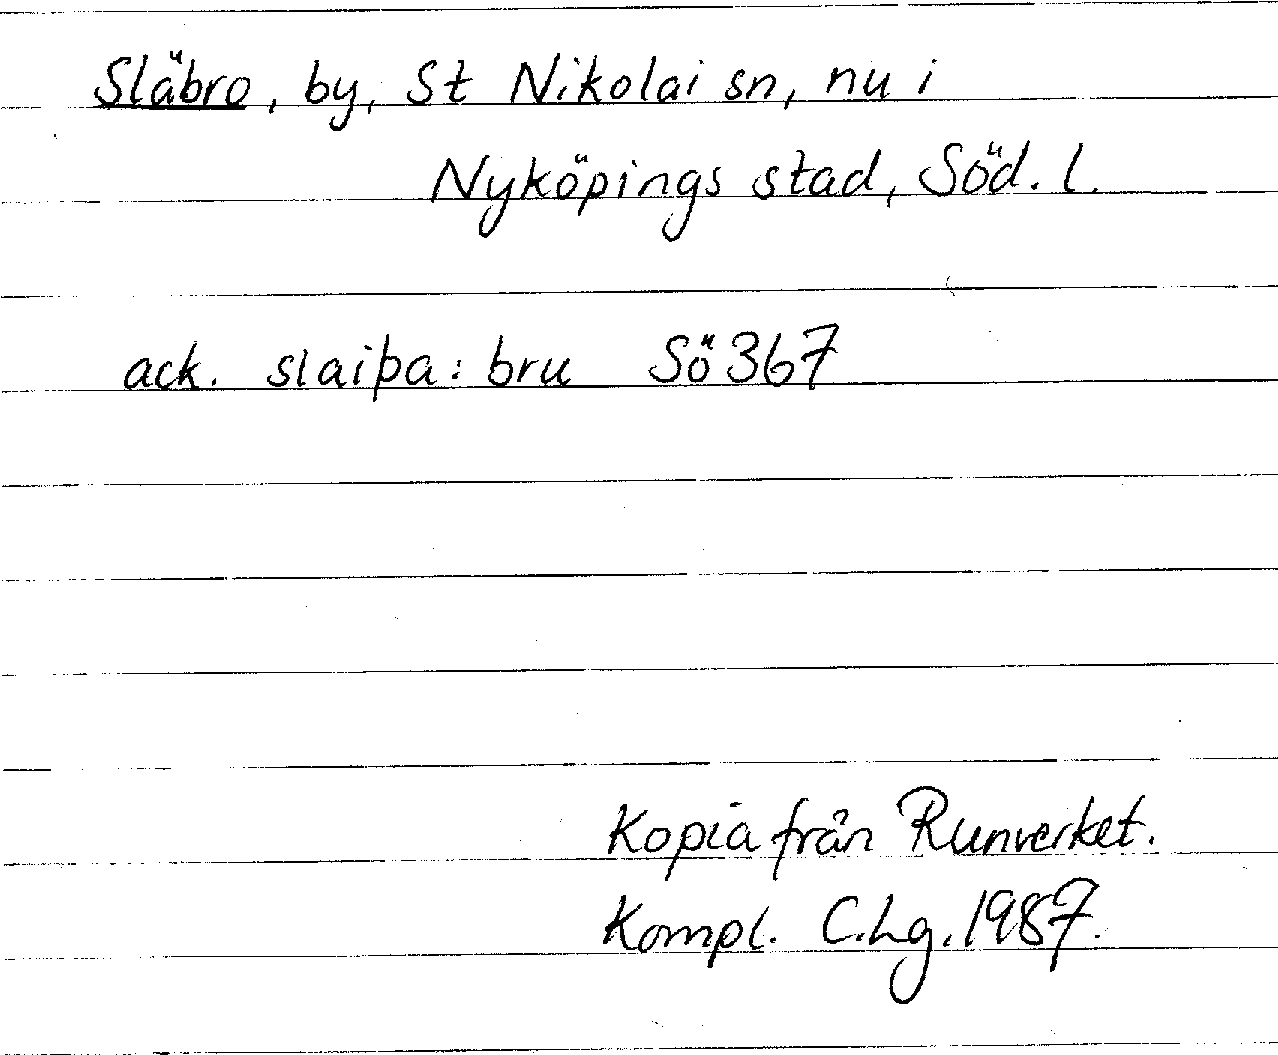 Släbro, by, St Nikolai sn, nu i
Nyköpings stad, Söd. l.
ack. slaiþa : bru Sö 367
Kopia från Runverket.
Kompl. C.Lg. 1987.